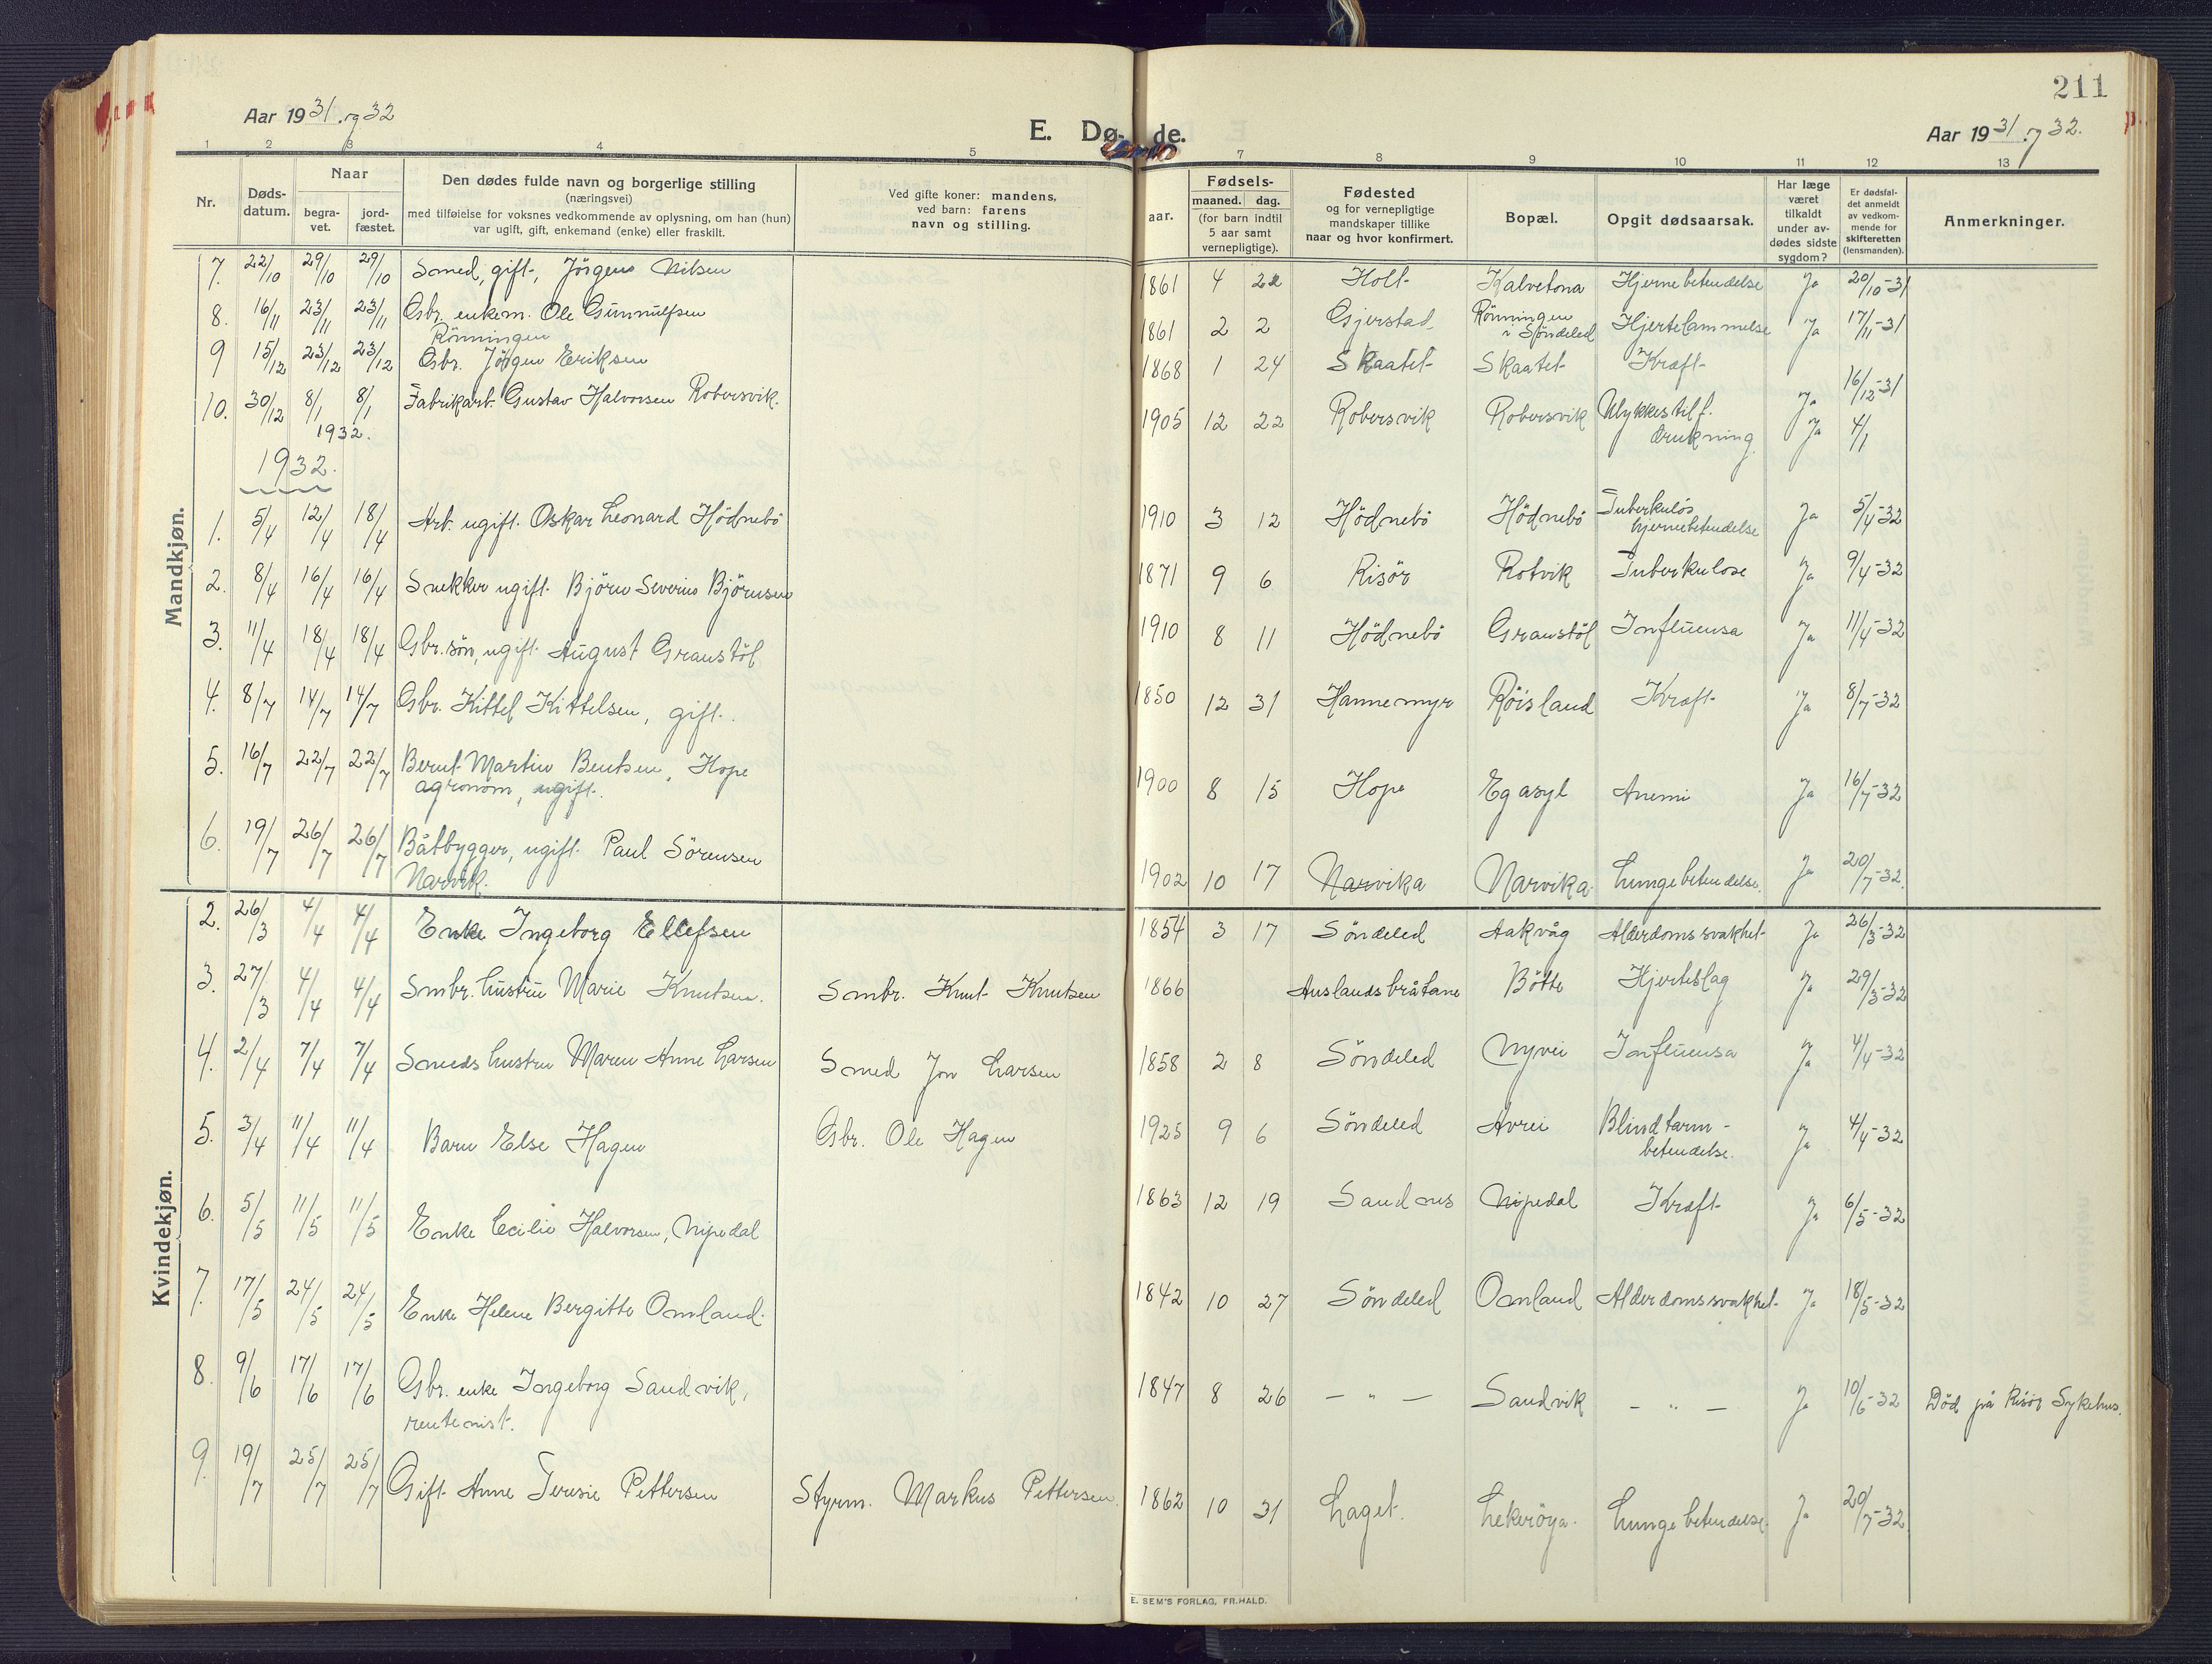 211
Aar 1931 og 32
E. Dø- de.
Aar 1931 og 32.
1 2 3 4 5 7 8 9 10 11 12 13
Nr.
Døds-
datum.
Naar
begra-
vet.
jord-
fæstet.
Den dødes fulde navn og borgerlige stilling
(næringsvei)
med tilføielse for voksnes vedkommende av oplysning, om han (hun)
var ugift, gift, enkemand (enke) eller fraskilt.
Ved gifte koner: mandens,
ved barn: farens
navn og stilling.
aar.
Fødsels-
maaned. dag.
(for barn indtil
5 aar samt
vernepligtige).
Fødested
og for vernepligtige
mandskaper tillike
naar og hvor konfirmert.
Bopæl.
Opgit dødsaarsak.
Har læge
været
tilkaldt
under av-
dødes sidste
sygdom?
Er dødsfal-
det anmeldt
av vedkom-
mende for
skifteretten
(lensmanden).
Anmerkninger.
Mandkjøn.
7. 22/10 29/10 29/10 Smed, gift, Jörgen Nilsen 1861 4 22 Holt Kalvetona Hjernebetendelse Ja 20/10-31
8. 16/11 23/11 23/11 Gbr. enkem. Ole Gunnulfsen
Rönningen 1861 2 2 Gjerstad Rönningen
i Söndeled Hjertelammelse Ja 17/11-31
9 15/12 23/12 23/12 Gbr. Jörgen Eriksen 1868 1 24 Skaatet Skaatet Kræft Ja 16/12-31
10. 30/12 8/1 8/1 Fabrikarb. Gustav Halvorsen Robersvik. 1905 12 22 Robersvik Robersvik Ulykkestilf.
drukning Ja 4/1
1932.
1932.
1. 5/4 12/4 18/4 Arb. ugift. Oskar Leonard Hödnebö 1910 3 12 Hödnebö Hödnebö Tuberkulös
hjernebetendelse Ja 5/4-32
2. 8/4 16/4 16/4 Snekker ugift. Björn Severin Björnsen 1871 9 6 Risör Rotvik Tuberkulose Ja 9/4-32
3. 11/4 18/4 18/4 Gbr.sön, ugift. August Granstöl 1910 8 11 Hödnebö Granstöl Influensa Ja 11/4-32
4. 8/7 14/7 14/7 Gbr. Kittel Kittelsen, gift. 1850 12 31 Hannemyr Röisland Kræft Ja 8/7-32
5. 16/7 22/7 22/7 Bernt Martin Bentsen, Hope
agronom, ugift. 1900 8 15 Hope Eg asyl Anemi Ja 16/7-32
6. 19/7 26/7 26/7 Båtbygger, ugift. Paul Sörensen
Narvik. 1902 10 17 Narvika Narvika Lungebetendelse. Ja 20/7-32.
Kvindekjøn.
2. 26/3 4/4 4/4 Enke Ingeborg Ellefsen 1854 3 17 Söndeled Aakvåg Alderdomssvakhet Ja 26/3-32
3. 27/3 4/4 4/4 Smbr. hustru Marie Knutsen. Smbr. Knut Knutsen 1866 Auslandsbråtane Bötte Hjerteslag Ja 29/3-32
4. 2/4 7/4 7/4 Smeds hustru Maren Anne Larsen Smed Jon Larsen 1858 2 8 Söndeled Nyvei Influensa Ja 4/4-32
5. 3/4 11/4 11/4 Barn Else Hagen Gbr. Ole Hagen 1925 9 6 Söndeled Avrei Blindtarm-
betendelse. Ja 4/4-32
6. 5/5 11/5 11/5 Enke Cecilie Halvorsen, Nipedal 1863 12 19 Sandnes Nipedal Kræft Ja 6/5-32
7. 17/5 24/5 24/5 Enke Helene Bergitte Omland. 1842 10 27 Söndeled Omland Alderdomssvakhet. Ja 18/5-32
8. 9/6 17/6 17/6 Gbr. enke Ingeborg Sandvik,
rentenist. 1847 8 26 — " — Sandvik — " — Ja 10/6-32 Död på Risör Sykehus.
9. 19/7 25/7 25/7 Gift Anne Teresie Pettersen Styrm. Markus Pettersen. 1862 10 31 Laget. Lekeröya. Lungebetendelse. Ja 20/7-32.
E. SEM'S FORLAG, FR.HALD.